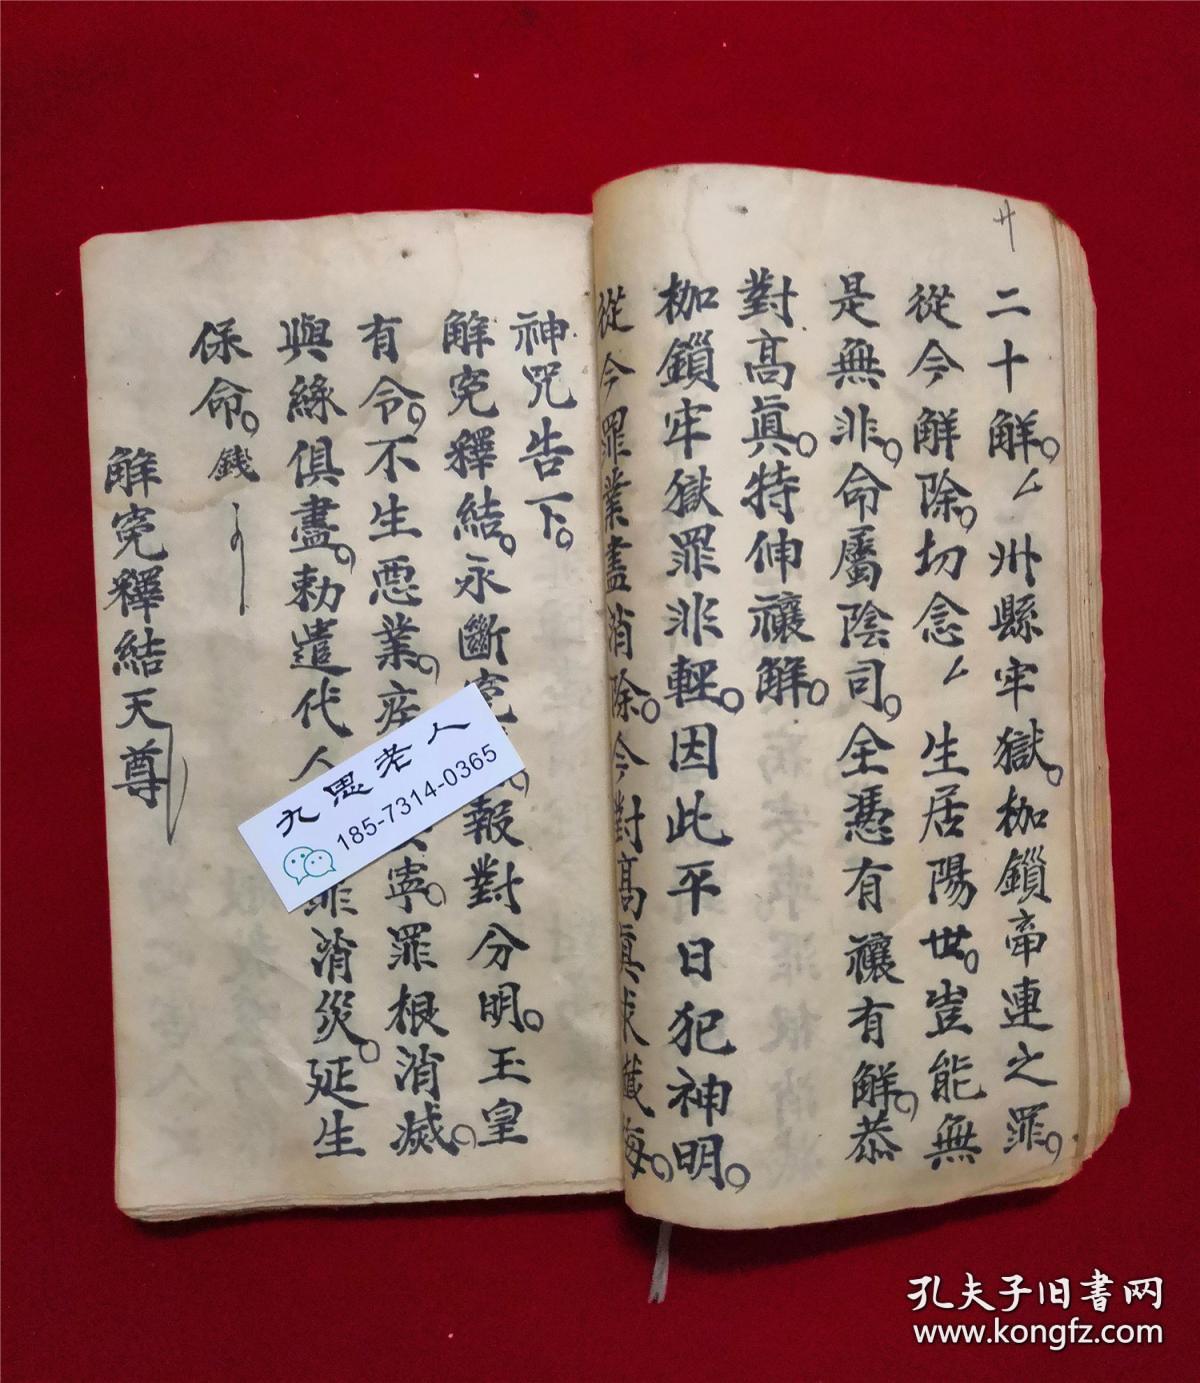 廿
二十解。㇏州縣牢獄。枷鎖牽連之罪。
從今解除。切念㇏生居陽世。豈能無
是無非。命屬陰司。全憑有禳有解。恭
對高真。特伸禳解。
枷鎖牢獄罪非輕。因此平日犯神明。
從今罪業盡消除。今對高真求懺悔。
神咒告下。
解冤釋結。永斷冤報對分明。玉皇
有令。不生惡業。寧。罪根消滅。
與緣俱盡。勅遣代人罪消災。延生
保命。錢
解冤釋結天尊
九思老人
185-7314-0365
孔夫子旧書网
www.kongfz.com